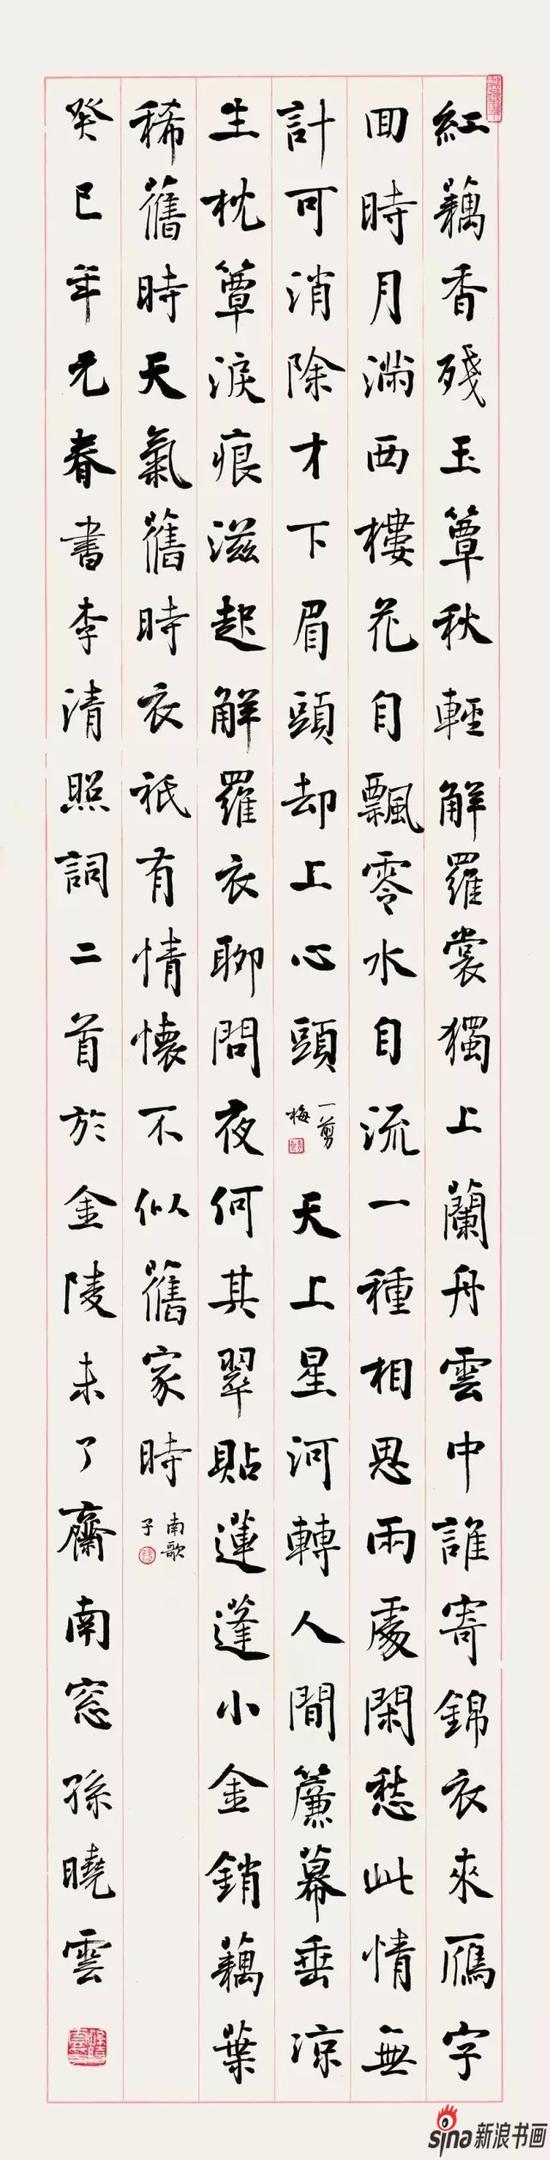 紅藕香殘玉簟秋輕解羅裳獨上蘭舟雲中誰寄錦衣來鴈字
回時月滿西樓花自飄零水自流一種相思兩處閑愁此情無
計可消除才下眉頭却上心頭一剪梅天上星河轉人間簾幕垂涼
生枕簟淚痕滋起解羅衣聊問夜何其翠貼蓮蓬小金銷藕葉
稀舊時天氣舊時衣祇有情懷不似舊家時南歌子
癸巳年元春書李清照詞二首於金陵未了齋南窓孫曉雲
sina新浪书画